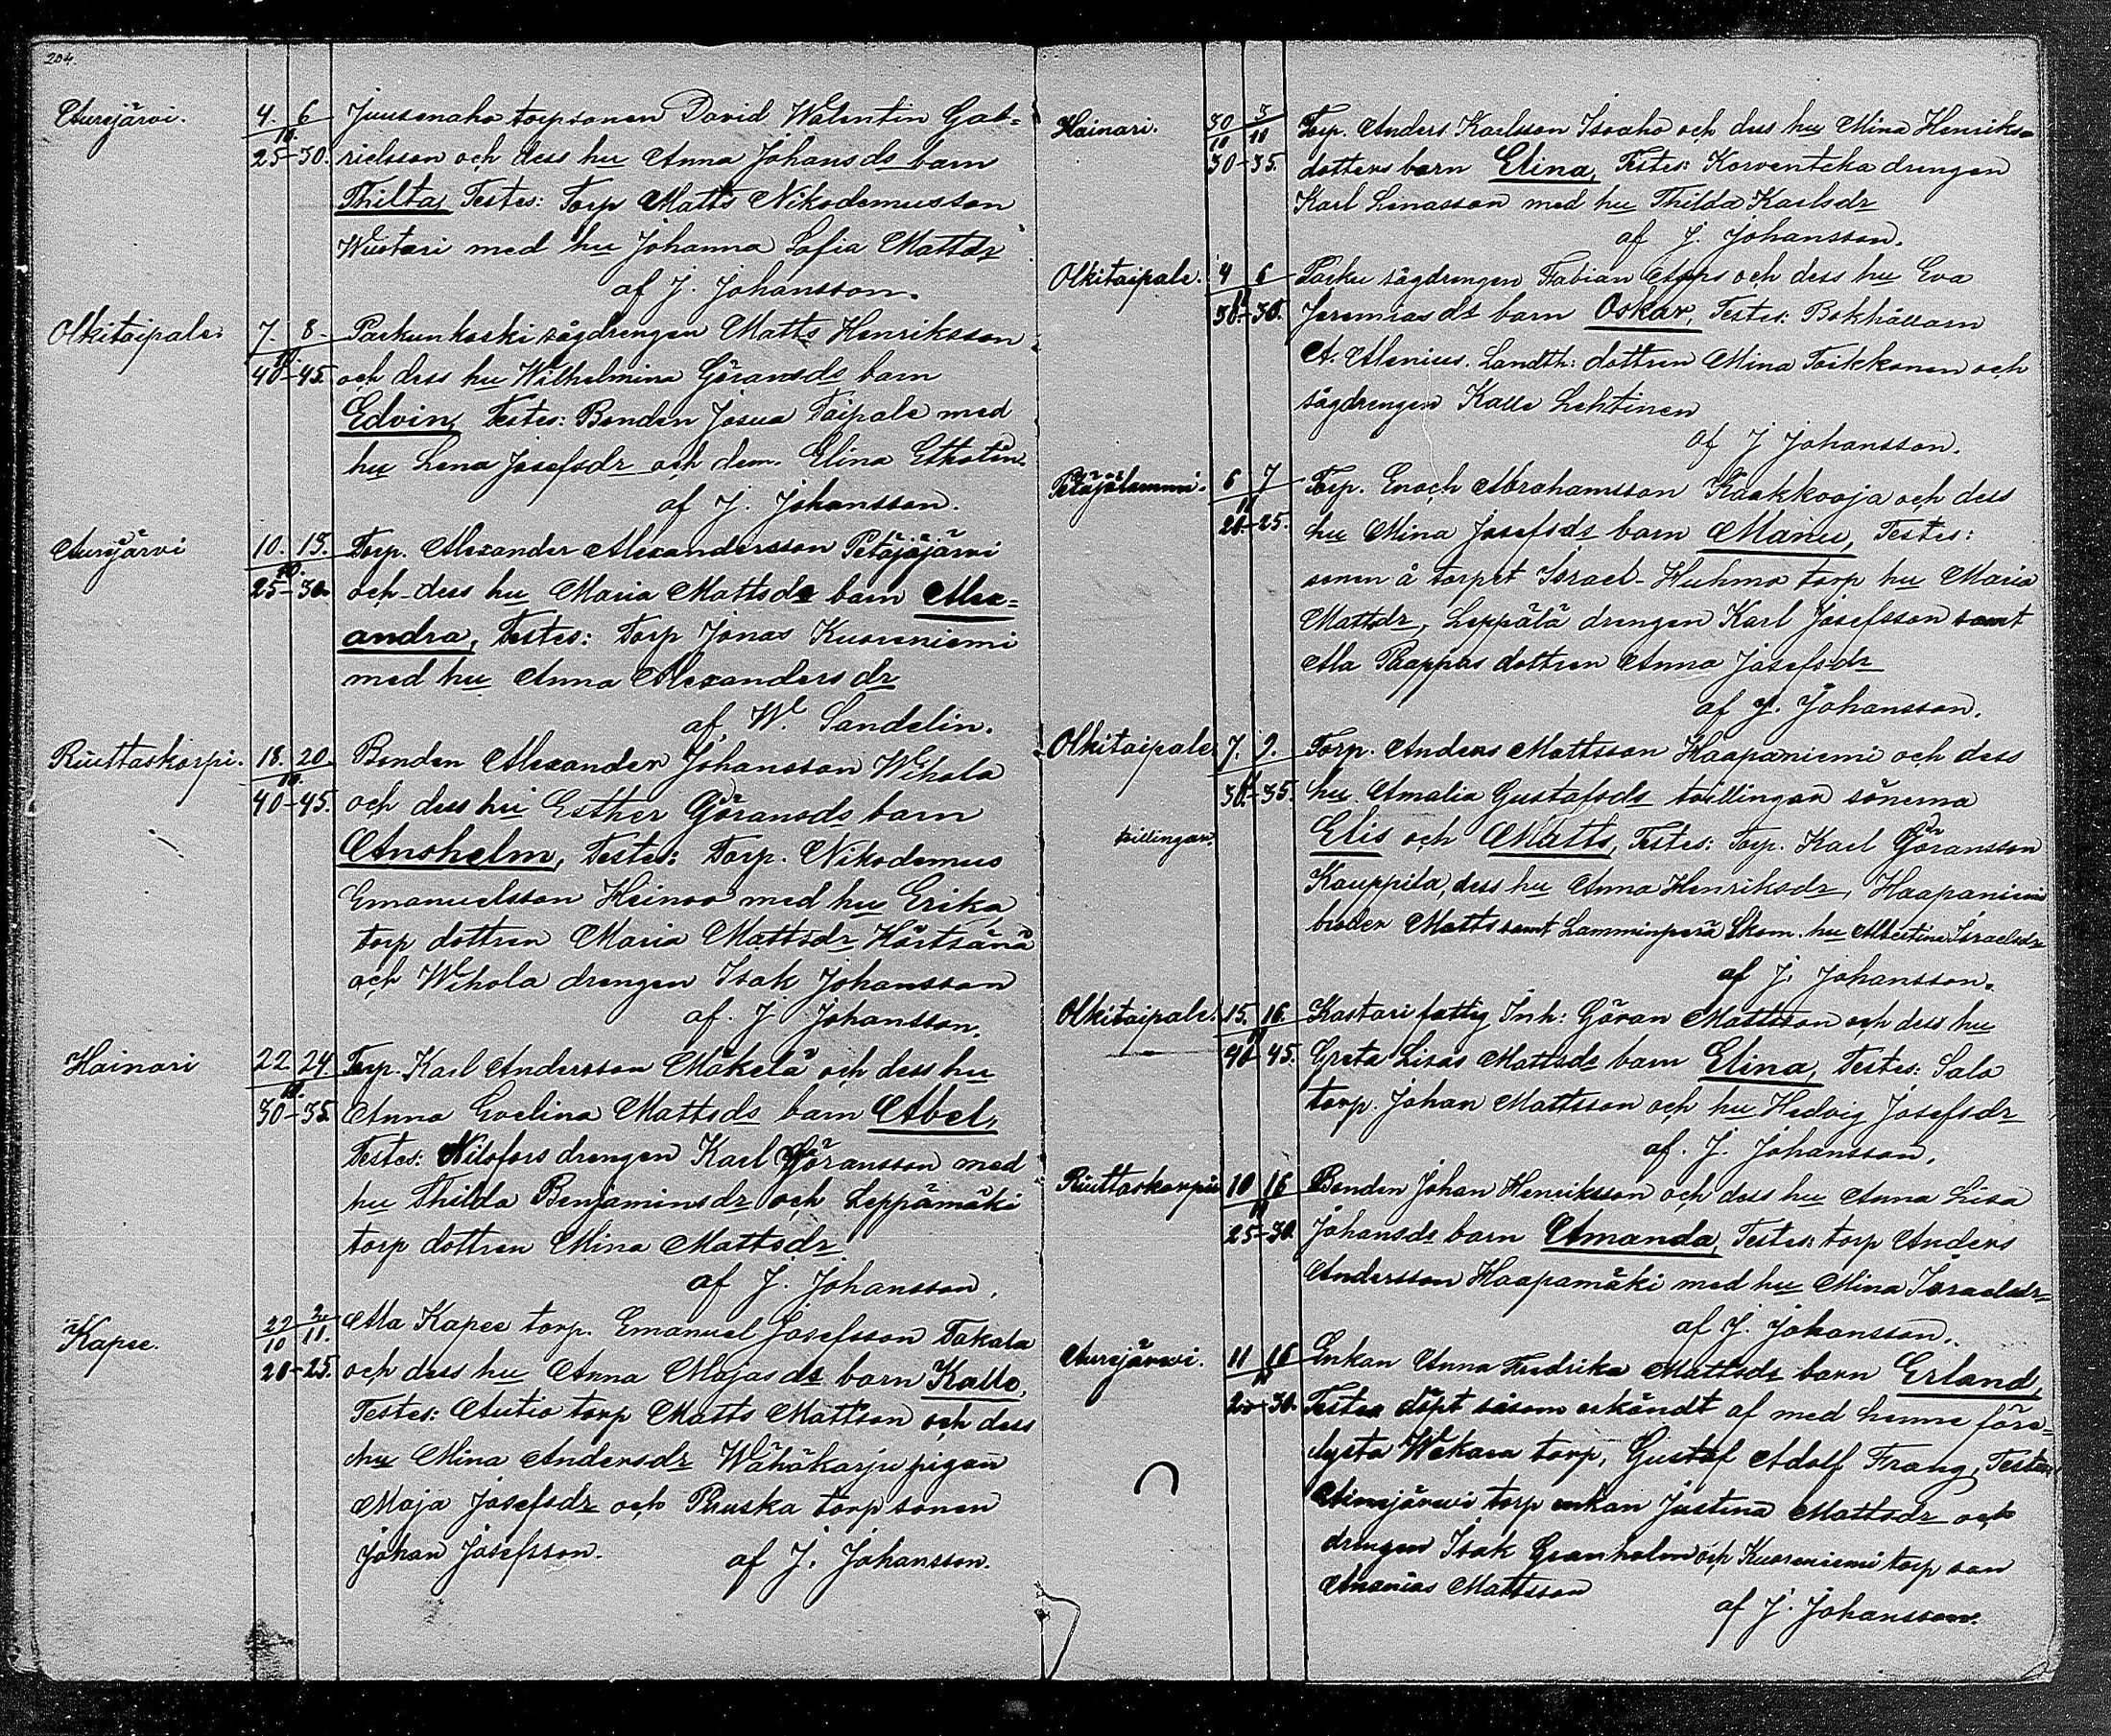 204.
Aurejärvi. 4. 6 Juusenaho torpsonen David Walentin Gab=
10.
25-30. rielsson och dess hu Anna Johansds barn
Thilta, Testes: Torp Matts Nikodemusson
Wuotari med hu Johanna Sofia Mattsdr
af J. Johansson.
Olkitaipale. 7. 8 Parkunkoski sågdrengen Matts Henriksson
10.
40-45. och dess hu Wilhelmina Göransds barn
Edvin, Testes: Bonden Josua Taipale med
hu Lena Josefsdr och dem. Elina
af J. Johansson.
Aurejärvi 10. 13. Torp. Alexander Alexandersson Petäjäjärvi
10.
25-30 och dess hu Maria Mattsdr barn Alex=
andra, Testes: Torp Jonas Kuoreniemi
med hu Anna Alexandersdr
af W. Sandelin.
Riuttaskorpi. 18. 20. Bonden Alexander Johansson Wihola
10.
40-45. och dess hu Esther Göransds barn
Anshelm, Testes: Torp. Nikodemus
Emanuelsson Heinoo med hu Erika,
torp dottren Maria Mattsdr Härtsänä
och Wihola drengen Isak Johansson
af. J Johansson.
Hainari 22. 24. Torp. Karl Andersson Mäkelä och dess hu
10.
30-35 Anna Evelina Mattsds barn Abel,
Testes: Nilsfors drengen Karl Göransson med
hu Thilda Benjaminsdr och Leppämäki
torp dottren Mina Mattsdr
af J. Johansson,
Kapee. 22 2 Ala Kapee torp. Emanuel Josefsson Takala
10 11.
20-25. och dess hu Anna Majasds barn Kalle,
Testes: Autio torp Matts Mattson och dess
hu Mina Andersdr Wähäkarju pigan
Maja Josefsdr och Ruska torp sonen
Johan Josefsson. af J. Johansson.
Hainari. 30 3 Torp. Anders Karlsson Isoaho och dess hu Mina Henriks=
10 11
30-35. dotters barn Elina, Testes: Korventeka drengen
Karl Linasson med hu Thilda Karlsdr
af J. Johansson.
Olkitaipale. 4 6 Parku sågdrengen Fabian och dess hu Eva
11
30.-30. Jeremiasds barn Oskar, Testes: Bokhållarn
A. Alenius. Landth: dottren Mina Toikkonen och
sågdrengen Kalle Lehtinen
af J Johansson.
Petäjälammi. 6 7 Torp. Enoch Abrahamsson Kaakkooja och dess
11
20.-25. hu Mina Josefsdr barn Manu, Testes:
sonen å torpet Israel-Huhmo torp hu Maria
Mattsdr, Leppälä drengen Karl Josefsson samt
Ala Paappas dottren Anna Josefsdr
af J. Johansson.
Olkitaipale 7. 9. Torp. Anders Mattsson Haapaniemi och dess
11
30.-35. hu Amalia Gustafsds tvillingar sönerna
tvillingar. Elis och Matts, Testes: Torp. Karl Göransson
Kauppila, dess hu Anna Henriksdr, Haapaniemi
broder Matts samt Lamminperä Skom. hu Albertina Israelsdr
af J. Johansson.
Olkitaipale. 15. 16. Kastari fattig Inh: Göran Mattsson och dess hu
11
40-45. Greta Lisas Mattsds barn Elina, Testes: Salo
torp. Johan Mattsson och hu Hedvig Josefsdr
af. J. Johansson,
Riuttaskorpi 10 16 Bonden Johan Henriksson och dess hu Anna Lisa
11
25-30. Johansds barn Amanda, Testes: torp Anders
Andersson Haapamäki med hu Mina Israelsdr
af J. Johansson.
Aurejärwi. 11 16 Enkan Anna Fredrika Mattsds barn Erland,
11
20-30. Testes döpt såsom erkändt af med henne före=
lysta Wekara torp, Gustaf Adolf Frang, Testes
Aurejärwi torp enkan Justina Mattsdr och
drengen Isak Granholm och Kuoreniemi torp son
Ananias Mattsson
af J. Johansson.